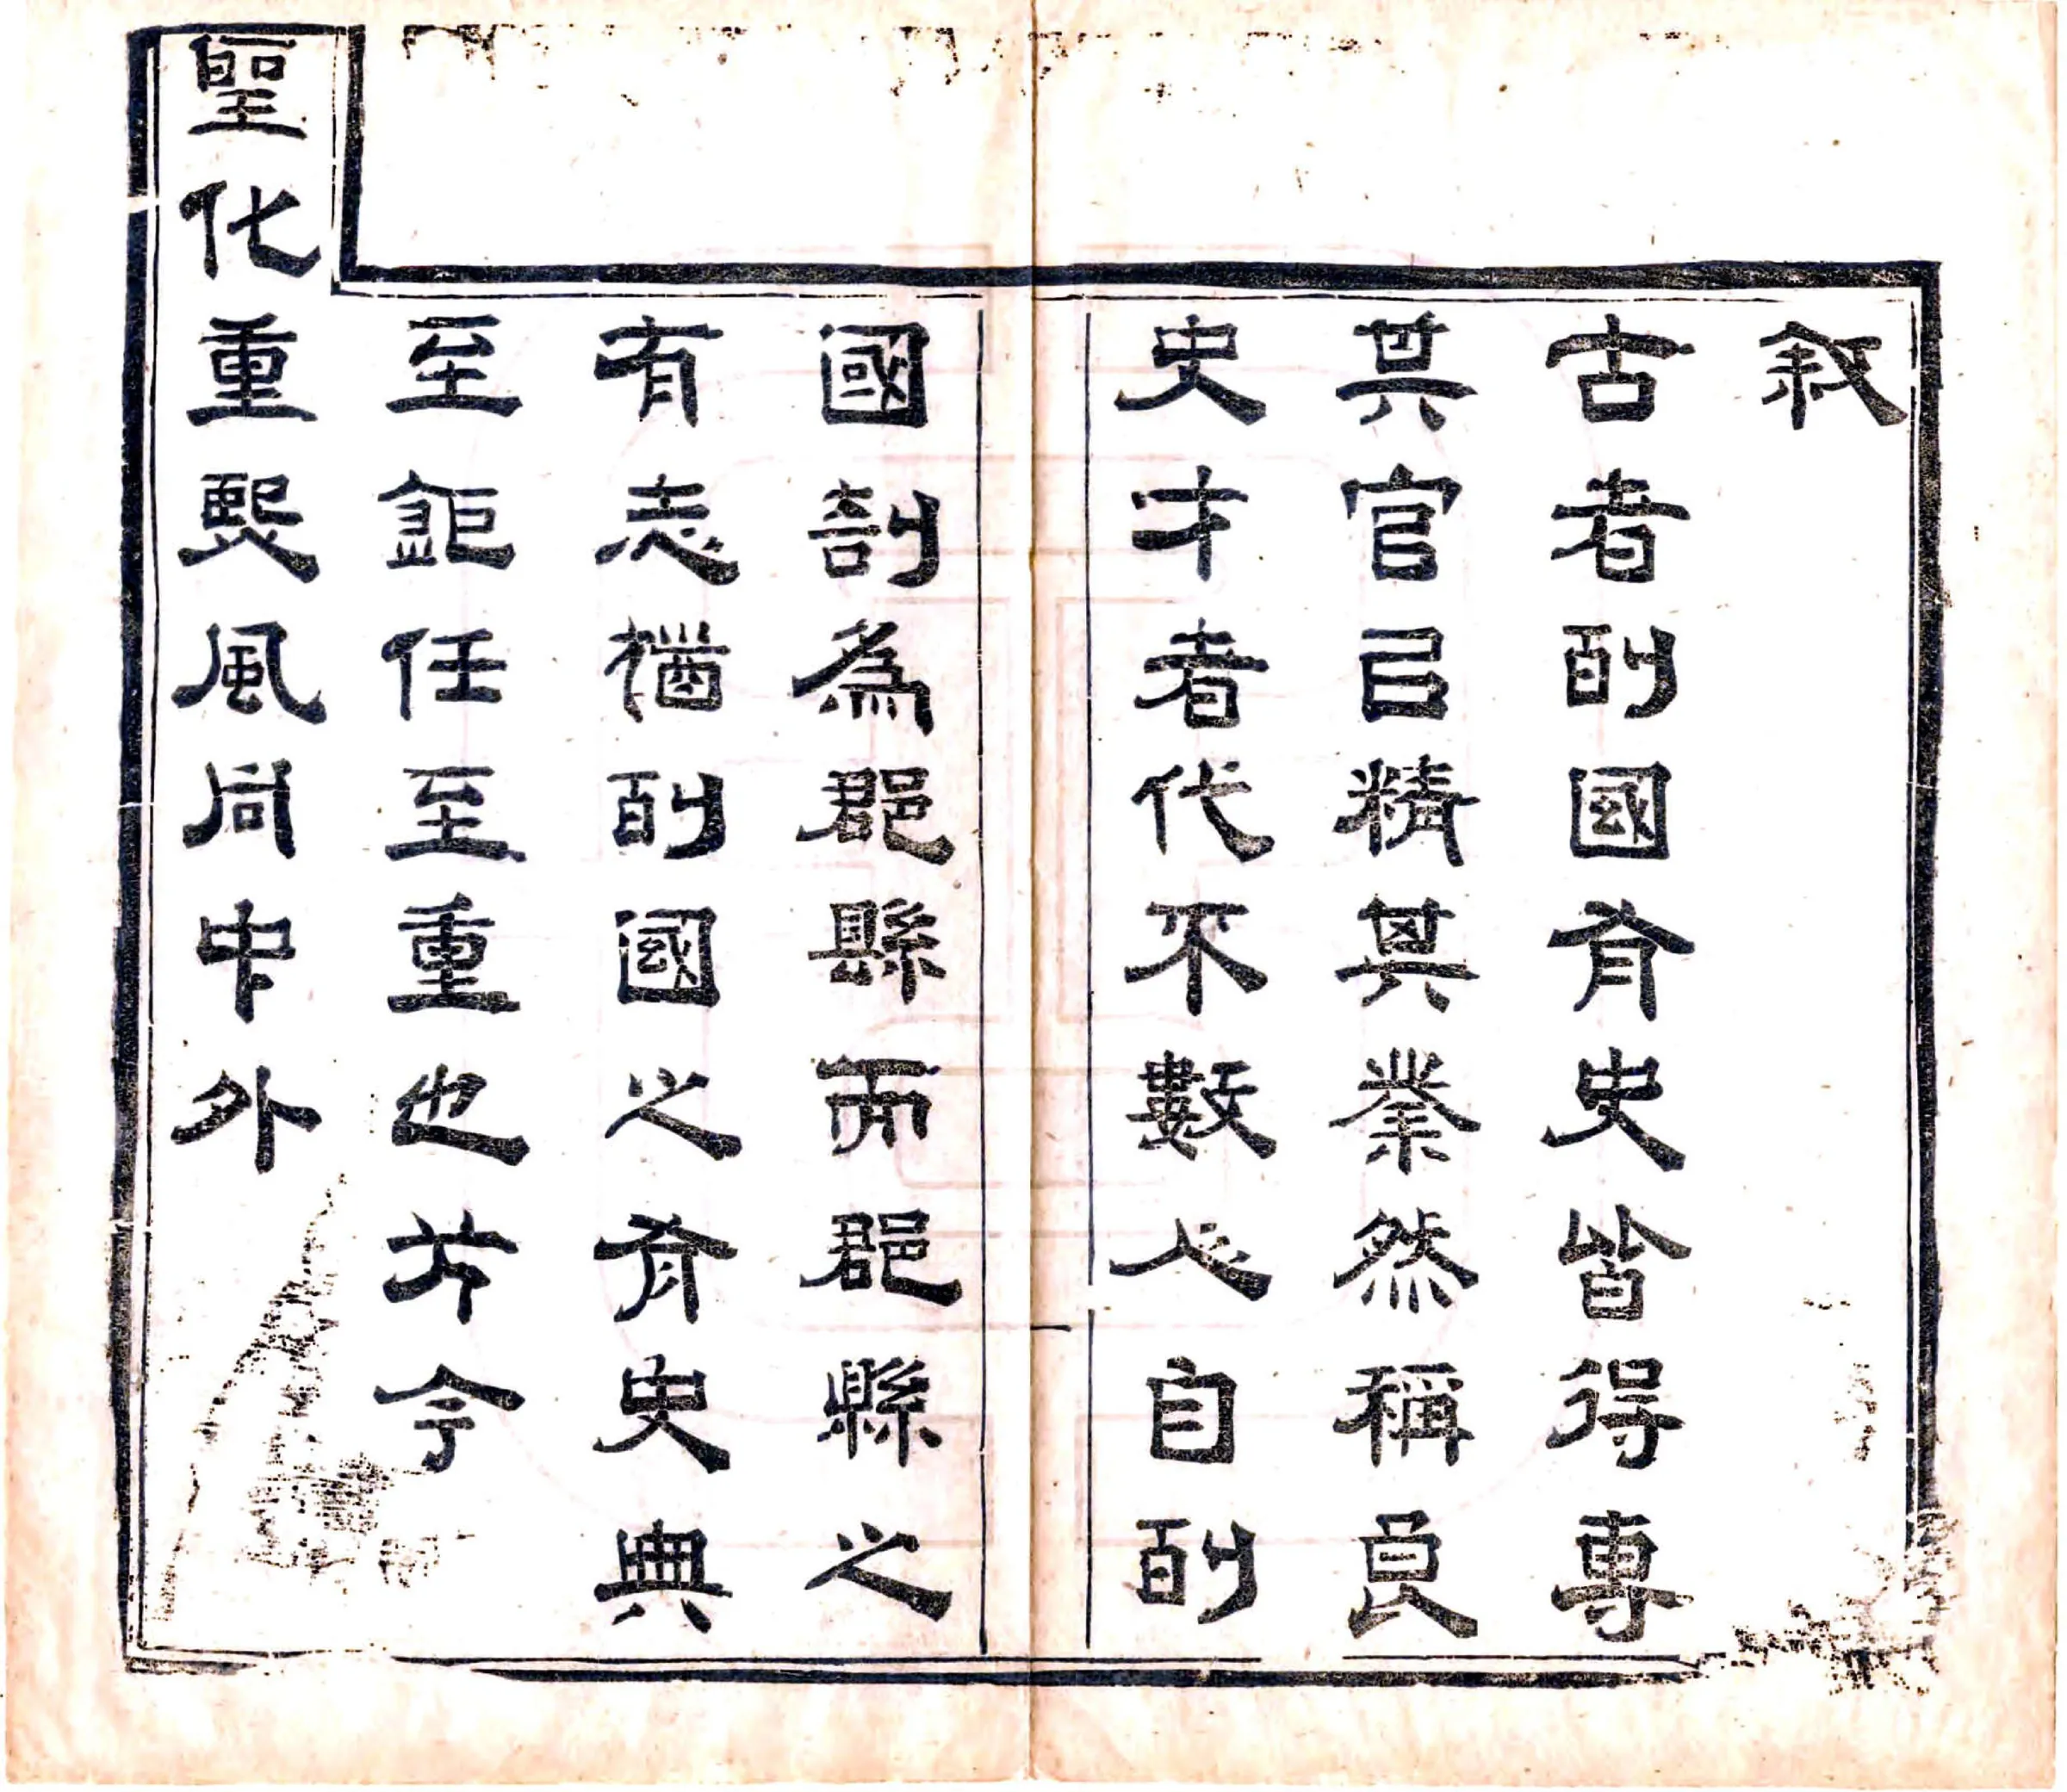 敘
古者列國有史皆得專
其官㠯精其業然稱良
史才者代不數人自列
國剖為郡縣而郡縣之
有志猶列國之有史典
至鉅任至重也方今
聖化重熙風同中外